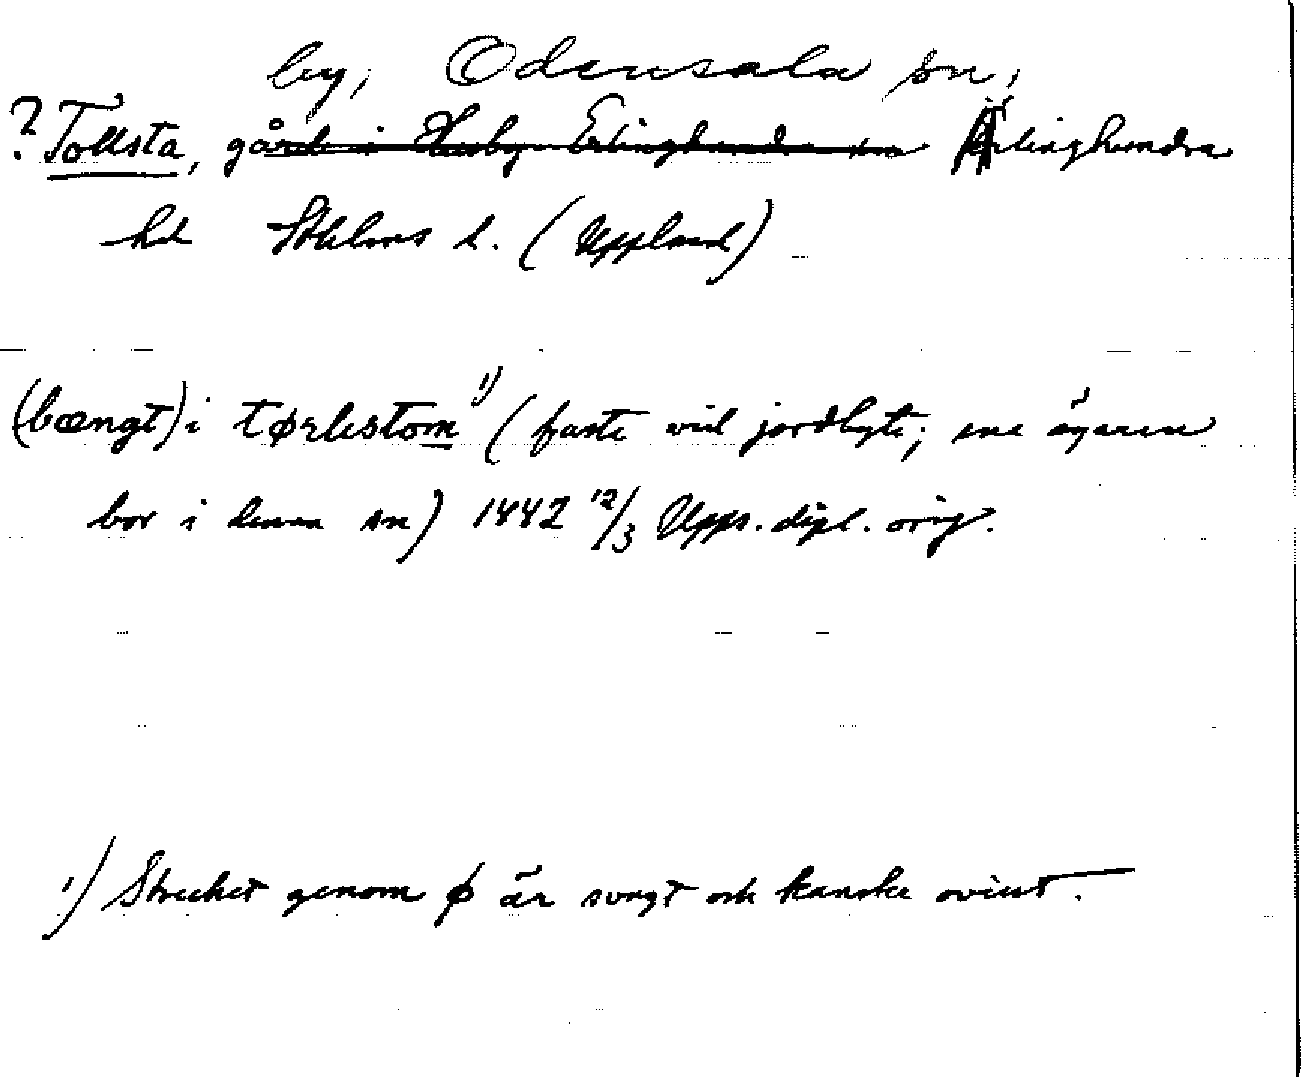 by, Odensala sn,
? Tollsta, gård i Husby Erlinghundra sn Ärlinghundra
hd Sthlms l. (Uppland)
(bængt) i tørlestom ¹⁾ (faste vid jordbyte; ene ägaren
bor i denna sn) 1442 12/3 Upps. dipl. orig.
1) Strecket genom ø är svagt och kanske avsikt.